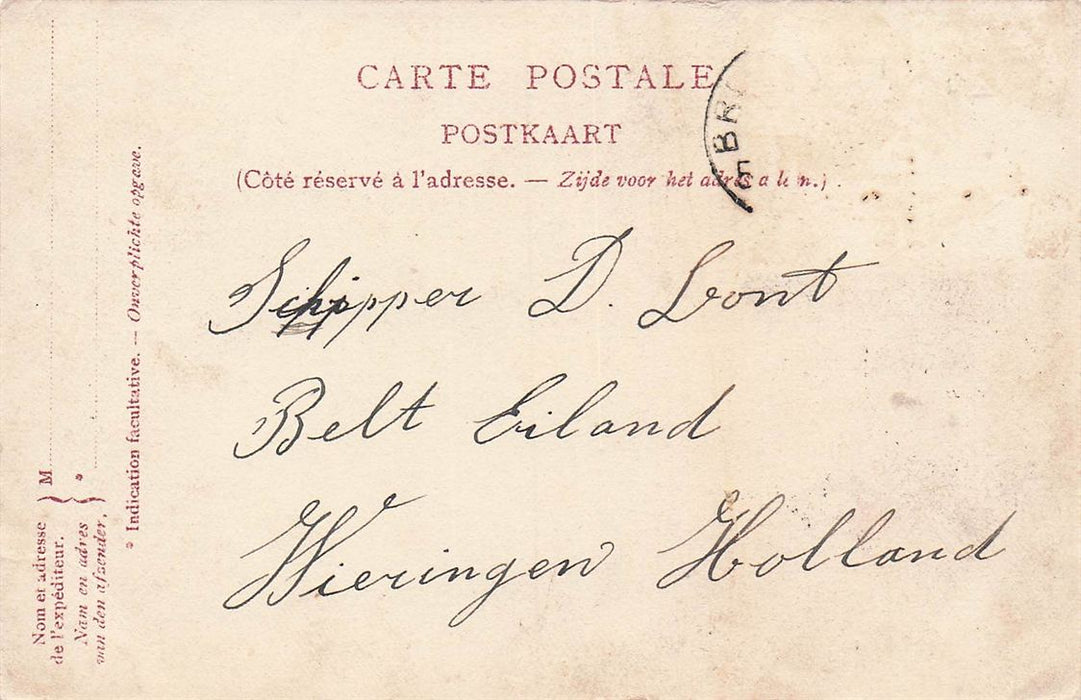 CARTE POSTALE
POSTKAART
(Côté réservé à l'adresse. — Zijde voor het adres a le n.)
BR
E
Schipper D. Lont
Belt Eiland
Wieringen Holland
M
Nom et adresse
de l'expéditeur.
Nam en adres
van den afzender.
* Indication facultative. — Onverplichte opgave.